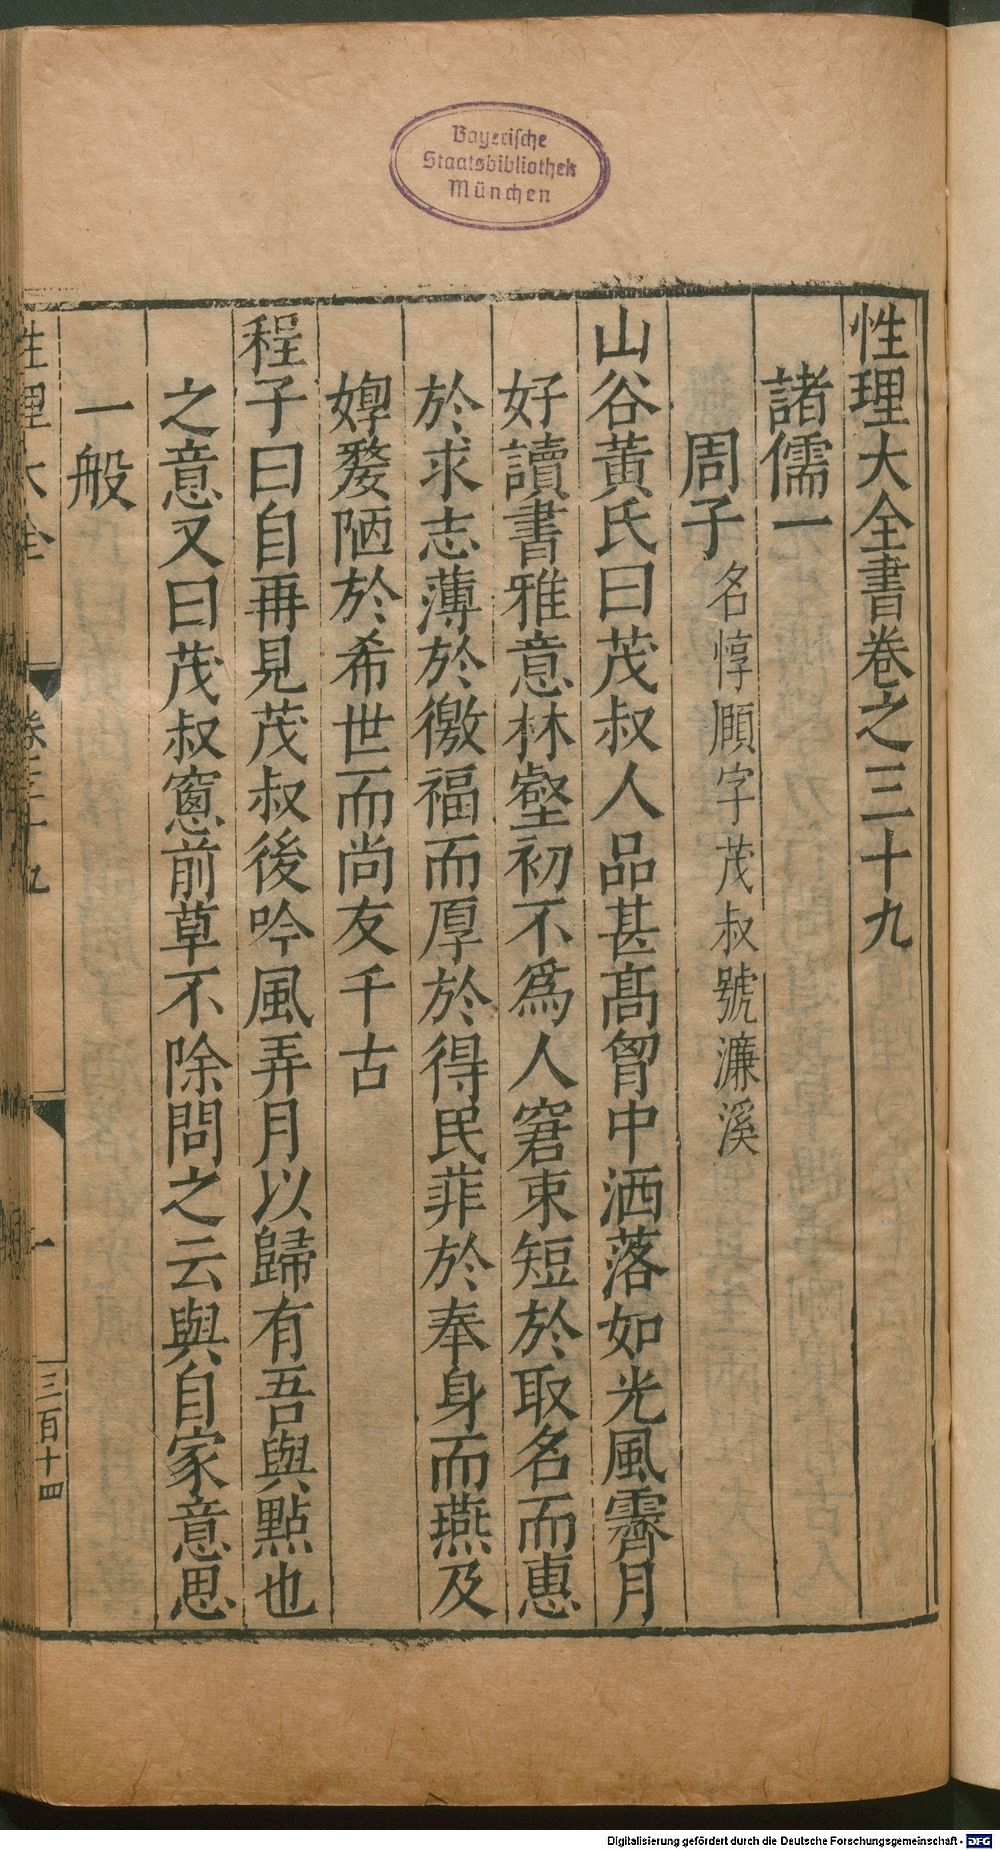 Bayerische
Staatsbibliothek
München
性理大全書卷之三十九
諸儒一
周子名惇頤字茂叔號濂溪
山谷黃氏曰茂叔人品甚髙胷中洒落如光風霽月
好讀書雅意林壑初不爲人窘束短於取名而惠
於求志薄於徼福而厚於得民菲於奉身而燕及
嫥嫠陋於希世而尚友千古
程子曰自再見茂叔後吟風弄月以歸有吾與點也
之意又曰茂叔窻前草不除問之云與自家意思
一般
性理大全
卷三十九
一
三百十四
Digitalisierung gefördert durch die Deutsche Forschungsgemeinschaft - DFG